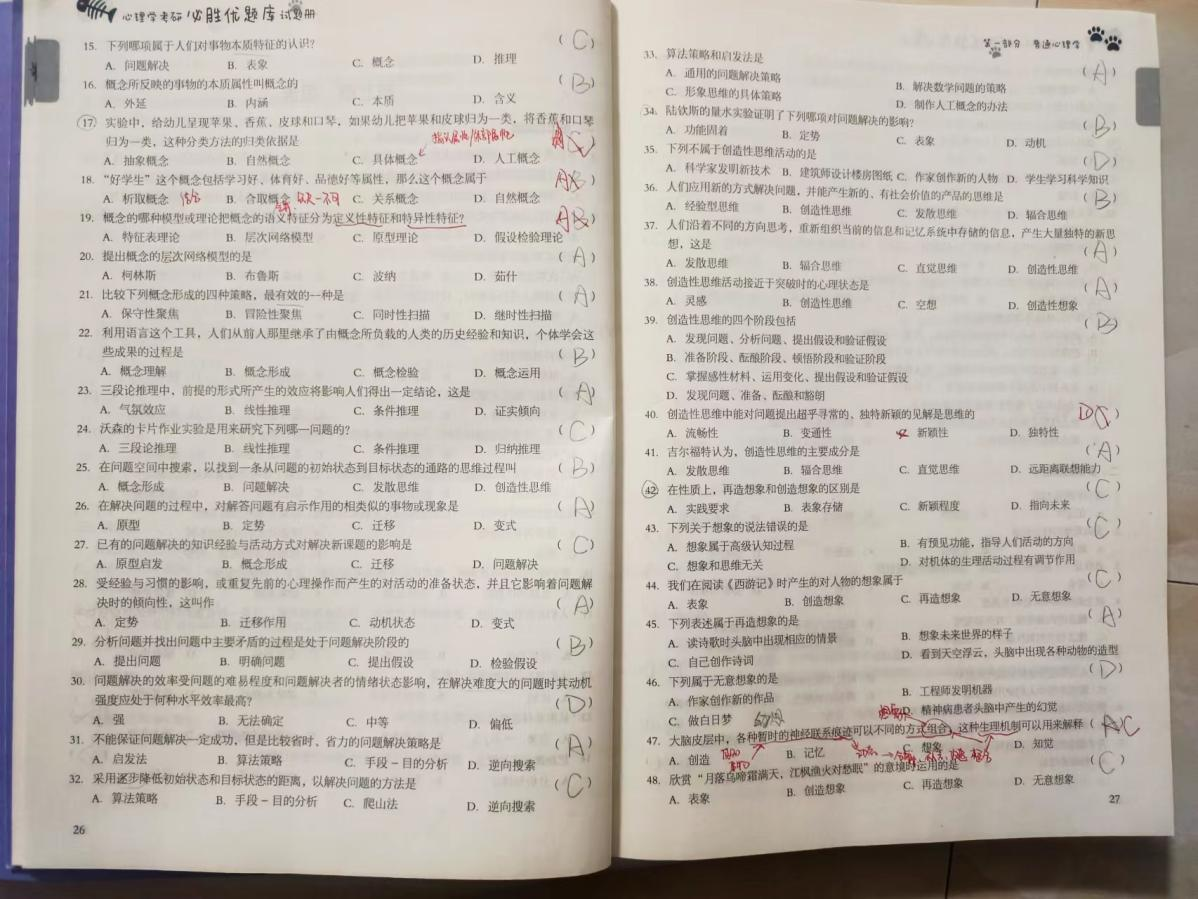 心理学考研必胜优题库试题册
15. 下列哪项属于人们对事物本质特征的认识? (C)
A. 问题解决 B. 表象 C. 概念 D. 推理
16. 概念所反映的事物的本质属性叫概念的 (B)
A. 外延 B. 内涵 C. 本质 D. 含义
17. 实验中,给幼儿呈现苹果、香蕉、皮球和口琴,如果幼儿把苹果和皮球归为一类,将香蕉和口琴
归为一类,这种分类方法的归类依据是
A. 抽象概念 B. 自然概念 C. 具体概念 D. 人工概念
18. “好学生”这个概念包括学习好、体育好、品德好等属性,那么这个概念属于
A. 析取概念 B. 合取概念 C. 关系概念 D. 自然概念
19. 概念的哪种模型或理论把概念的语义特征分为定义性特征和特异性特征?
A. 特征表理论 B. 层次网络模型 C. 原型理论 D. 假设检验理论
20. 提出概念的层次网络模型的是 (A)
A. 柯林斯 B. 布鲁斯 C. 波纳 D. 茹什
21. 比较下列概念形成的四种策略,最有效的一种是 (A)
A. 保守性聚焦 B. 冒险性聚焦 C. 同时性扫描 D. 继时性扫描
22. 利用语言这个工具,人们从前人那里继承了由概念所负载的人类的历史经验和知识,个体学会这
些成果的过程是 (B)
A. 概念理解 B. 概念形成 C. 概念检验 D. 概念运用
23. 三段论推理中,前提的形式所产生的效应将影响人们得出一定结论,这是 (A)
A. 气氛效应 B. 线性推理 C. 条件推理 D. 证实倾向
24. 沃森的卡片作业实验是用来研究下列哪一问题的? (C)
A. 三段论推理 B. 线性推理 C. 条件推理 D. 归纳推理
25. 在问题空间中搜索,以找到一条从问题的初始状态到目标状态的通路的思维过程叫 (B)
A. 概念形成 B. 问题解决 C. 发散思维 D. 创造性思维
26. 在解决问题的过程中,对解答问题有启示作用的相类似的事物或现象是 (A)
A. 原型 B. 定势 C. 迁移 D. 变式
27. 已有的问题解决的知识经验与活动方式对解决新课题的影响是 (C)
A. 原型启发 B. 概念形成 C. 迁移 D. 问题解决
28. 受经验与习惯的影响,或重复先前的心理操作而产生的对活动的准备状态,并且它影响着问题解
决时的倾向性,这叫作 (A)
A. 定势 B. 迁移作用 C. 动机状态 D. 变式
29. 分析问题并找出问题中主要矛盾的过程是处于问题解决阶段的 (B)
A. 提出问题 B. 明确问题 C. 提出假设 D. 检验假设
30. 问题解决的效率受问题的难易程度和问题解决者的情绪状态影响,在解决难度大的问题时其动机
强度应处于何种水平效率最高? (D)
A. 强 B. 无法确定 C. 中等 D. 偏低
31. 不能保证问题解决一定成功,但是比较省时、省力的问题解决策略是 (A)
A. 启发法 B. 算法策略 C. 手段-目的分析 D. 逆向搜索
32. 采用逐步降低初始状态和目标状态的距离,以解决问题的方法是 (C)
A. 算法策略 B. 手段-目的分析 C. 爬山法 D. 逆向搜索
26
第一部分 普通心理学
33. 算法策略和启发法是 (A)
A. 通用的问题解决策略 B. 解决数学问题的策略
C. 形象思维的具体策略 D. 制作人工概念的办法
34. 陆钦斯的量水实验证明了下列哪项对问题解决的影响? (B)
A. 功能固着 B. 定势 C. 表象 D. 动机
35. 下列不属于创造性思维活动的是 (D)
A. 科学家发明新技术 B. 建筑师设计楼房图纸 C. 作家创作新的人物 D. 学生学习科学知识
36. 人们应用新的方式解决问题,并能产生新的、有社会价值的产品的思维是 (B)
A. 经验型思维 B. 创造性思维 C. 发散思维 D. 辐合思维
37. 人们沿着不同的方向思考,重新组织当前的信息和记忆系统中存储的信息,产生大量独特的新思
想,这是 (A)
A. 发散思维 B. 辐合思维 C. 直觉思维 D. 创造性思维
38. 创造性思维活动接近于突破时的心理状态是 (A)
A. 灵感 B. 创造性思维 C. 空想 D. 创造性想象
39. 创造性思维的四个阶段包括 (B)
A. 发现问题、分析问题、提出假设和验证假设
B. 准备阶段、酝酿阶段、顿悟阶段和验证阶段
C. 掌握感性材料、运用变化、提出假设和验证假设
D. 发现问题、准备、酝酿和豁朗
40. 创造性思维中能对问题提出超乎寻常的、独特新颖的见解是思维的
A. 流畅性 B. 变通性 C. 新颖性 D. 独特性
41. 吉尔福特认为,创造性思维的主要成分是 (A)
A. 发散思维 B. 辐合思维 C. 直觉思维 D. 远距离联想能力
42. 在性质上,再造想象和创造想象的区别是 (C)
A. 实践要求 B. 表象存储 C. 新颖程度 D. 指向未来
43. 下列关于想象的说法错误的是 (C)
A. 想象属于高级认知过程 B. 有预见功能,指导人们活动的方向
C. 想象和思维无关 D. 对机体的生理活动过程有调节作用
44. 我们在阅读《西游记》时产生的对人物的想象属于 (C)
A. 表象 B. 创造想象 C. 再造想象 D. 无意想象
45. 下列表述属于再造想象的是 (A)
A. 读诗歌时头脑中出现相应的情景 B. 想象未来世界的样子
C. 自己创作诗词 D. 看到天空浮云,头脑中出现各种动物的造型
46. 下列属于无意想象的是 (D)
A. 作家创作新的作品 B. 工程师发明机器
C. 做白日梦 D. 精神病患者头脑中产生的幻觉
47. 大脑皮层中,各种暂时的神经联系痕迹可以不同的方式组合,这种生理机制可以用来解释
A. 创造 B. 记忆 C. 想象 D. 知觉
48. 欣赏“月落乌啼霜满天,江枫渔火对愁眠”的意境时运用的是 (C)
A. 表象 B. 创造想象 C. 再造想象 D. 无意想象
27